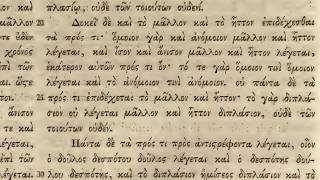 ον καὶ πλασίῳ, οὐδὲ τῶν τοιούτων οὐδέν.
μᾶλλον 20 Δοκεῖ δὲ καὶ τὸ μᾶλλον καὶ τὸ ἧττον ἐπιδέχεσθαι
τε οὐδὲν τὰ πρός τι· ὅμοιον γὰρ καὶ ἀνόμοιον μᾶλλον καὶ ἧττον
χρόνος λέγεται, καὶ ἴσον καὶ ἄνισον μᾶλλον καὶ ἧττον λέγεται,
ἐπὶ τῶν ἑκάτερον αὐτῶν πρός τι ὄν· τό τε γὰρ ὅμοιον τινὶ ὅμοιον
λέγεται καὶ τὸ ἀνόμοιον τινὶ ἀνόμοιον. οὐ πάντα δὲ τὰ
25 πρός τι ἐπιδέχεται τὸ μᾶλλον καὶ ἧττον· τὸ γὰρ διπλά-
ἄνισον σιον οὐ λέγεται μᾶλλον καὶ ἧττον διπλάσιον, οὐδὲ τῶν
τε καὶ τοιούτων οὐδέν.
λέγεται. Πάντα δὲ τὰ πρός τι πρὸς ἀντιστρέφοντα λέγεται, οἷον
ἐπὶ τῶν ὁ δοῦλος δεσπότου δοῦλος λέγεται καὶ ὁ δεσπότης δού-
λέγεται. 30 λου δεσπότης, καὶ τὸ διπλάσιον ἡμίσεος διπλάσιον καὶ τὸ